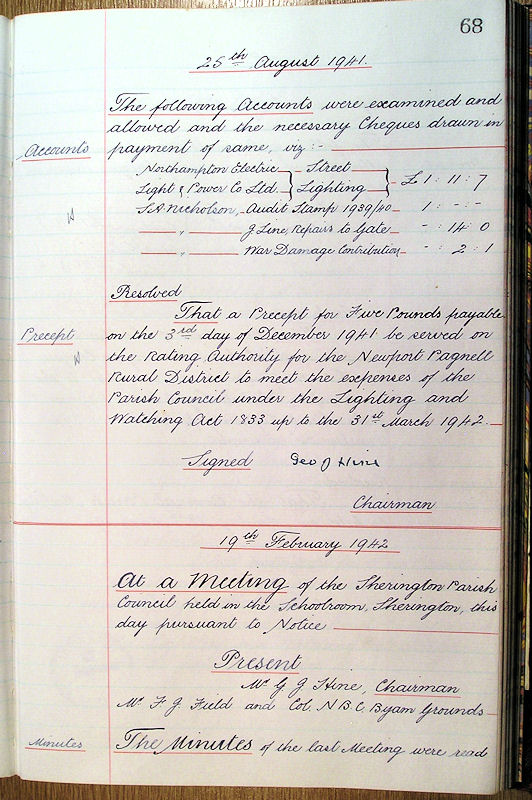 68
25th August 1941.
The following Accounts were examined and
allowed and the necessary Cheques drawn in
Accounts payment of same, viz :-
Northampton Electric } Street } £ 1 : 11 : 7
Light & Power Co Ltd. } Lighting }
S A Nicholson, Audit Stamp 1939/40 1 : - : -
" J Line, Repairs to Gate - : 14 : 0
" War Damage Contribution - : 2 : 1
Resolved
That a Precept for Five Pounds payable
Precept on the 3rd day of December 1941 be served on
the Rating Authority for the Newport Pagnell
Rural District to meet the expenses of the
Parish Council under the Lighting and
Watching Act 1833 up to the 31st March 1942.
Signed Geo J Hine
Chairman
19th February 1942
At a Meeting of the Sherington Parish
Council held in the Schoolroom, Sherington, this
day pursuant to Notice
Present
Mr G J Hine, Chairman
Mr F J Field and Col. N B C Byam Grounds
Minutes The Minutes of the last Meeting were read